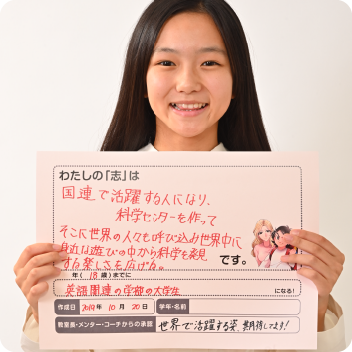 わたしの「志」は
国連で活躍する人になり、
科学センターを作って
そこに世界の人々も呼び込み世界中に
身近な遊びの中から科学を発見
する楽しさを広げる。
です。
年( 18 歳)までに
英語関連の学部の大学生
になる!
作成日 2019年 10月 20日 学年・名前
教室長・メンター・コーチからの承認 世界で活躍する姿、期待してます!